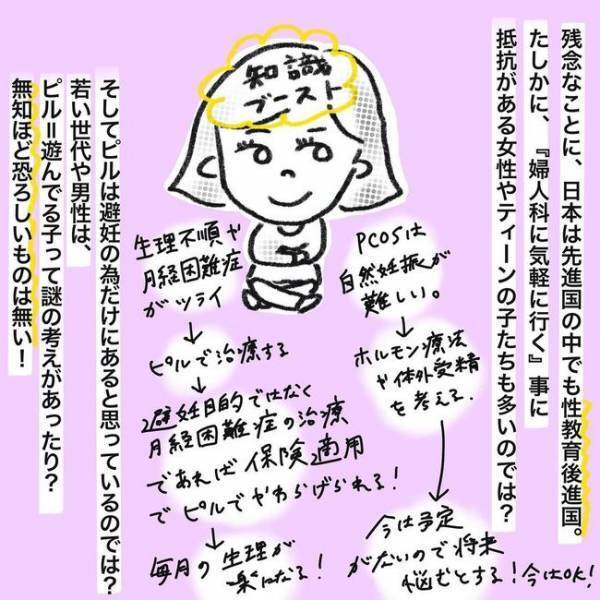 残念なことに、日本は先進国の中でも性教育後進国。
たしかに、『婦人科に気軽に行く』事に
抵抗がある女性やティーンの子たちも多いのでは？
知識
ブースト！
PCOSは
自然妊娠が
難しい。
↓
ホルモン療法
や体外受精
を考える。
↓
今は予定
がないので将来
悩むとする！今はOK！
生理不順や
月経困難症
がツライ
↓
ピルで治療する
↓
避妊目的ではなく
月経困難症の治療
であれば保険適用
でピルでやわらげられる！
↓
毎月の生理が
楽になる！
そしてピルは避妊の為だけにあると思っているのでは？
若い世代や男性は、
ピル＝遊んでる子って謎の考えがあったり？
無知ほど恐ろしいものは無い！